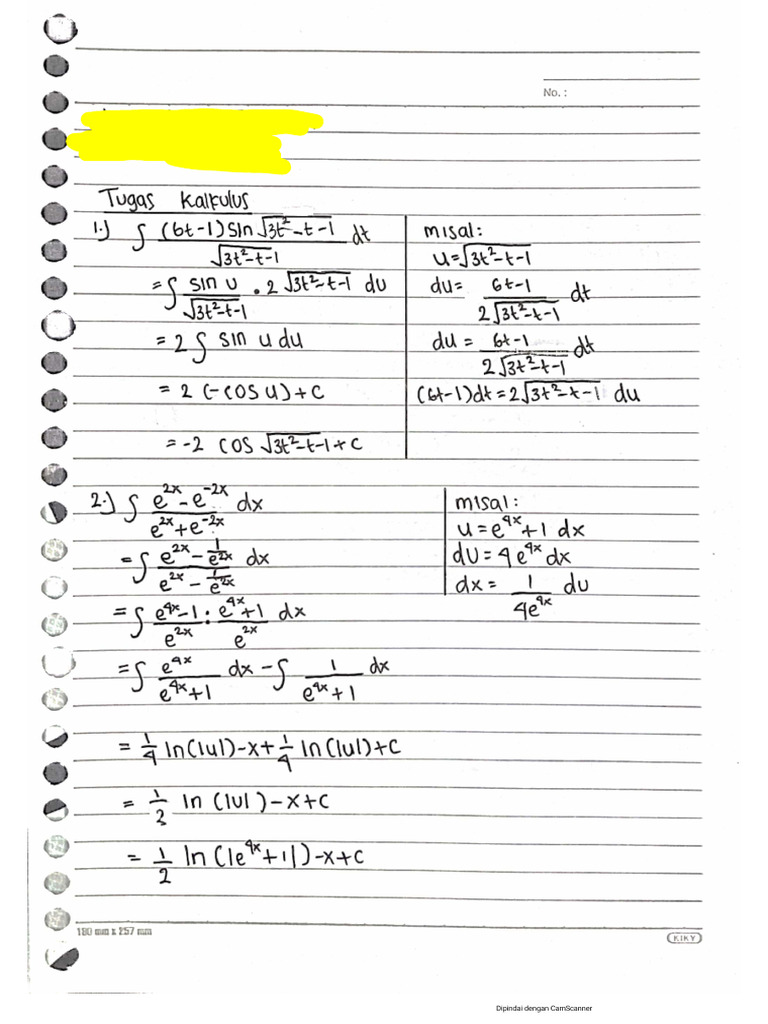 No. :
Tugas Kalkulus
1.) ∫ (6t-1) sin √(3t²-t-1) / √(3t²-t-1) dt
= ∫ sin u / √(3t²-t-1) . 2 √(3t²-t-1) du
= 2 ∫ sin u du
= 2 (-cos u) + c
= -2 cos √(3t²-t-1) + c
misal:
u = √(3t²-t-1)
du = (6t-1) / (2√(3t²-t-1)) dt
du = (6t-1) / (2√(3t²-t-1)) dt
(6t-1)dt = 2√(3t²-t-1) du
2.) ∫ (e^2x - e^-2x) / (e^2x + e^-2x) dx
= ∫ (e^2x - 1/e^2x) / (e^2x - 1/e^2x) dx
= ∫ (e^4x - 1)/e^2x : (e^4x + 1)/e^2x dx
= ∫ e^4x / (e^4x + 1) dx - ∫ 1 / (e^4x + 1) dx
= 1/4 ln(|u|) - x + 1/4 ln(|u|) + c
= 1/2 ln(|u|) - x + c
= 1/2 ln(|e^4x + 1|) - x + c
misal:
u = e^4x + 1 dx
du = 4e^4x dx
dx = 1 / 4e^4x du
180 mm x 257 mm
KIKY
Dipindai dengan CamScanner